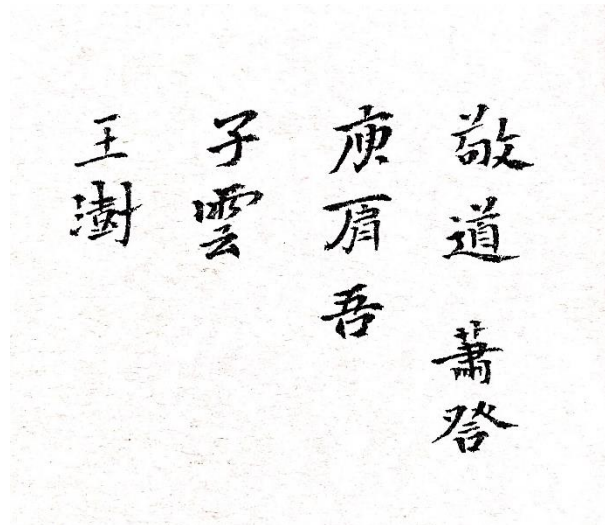 敬道 蕭詧
庾肩吾
子雲
王澍